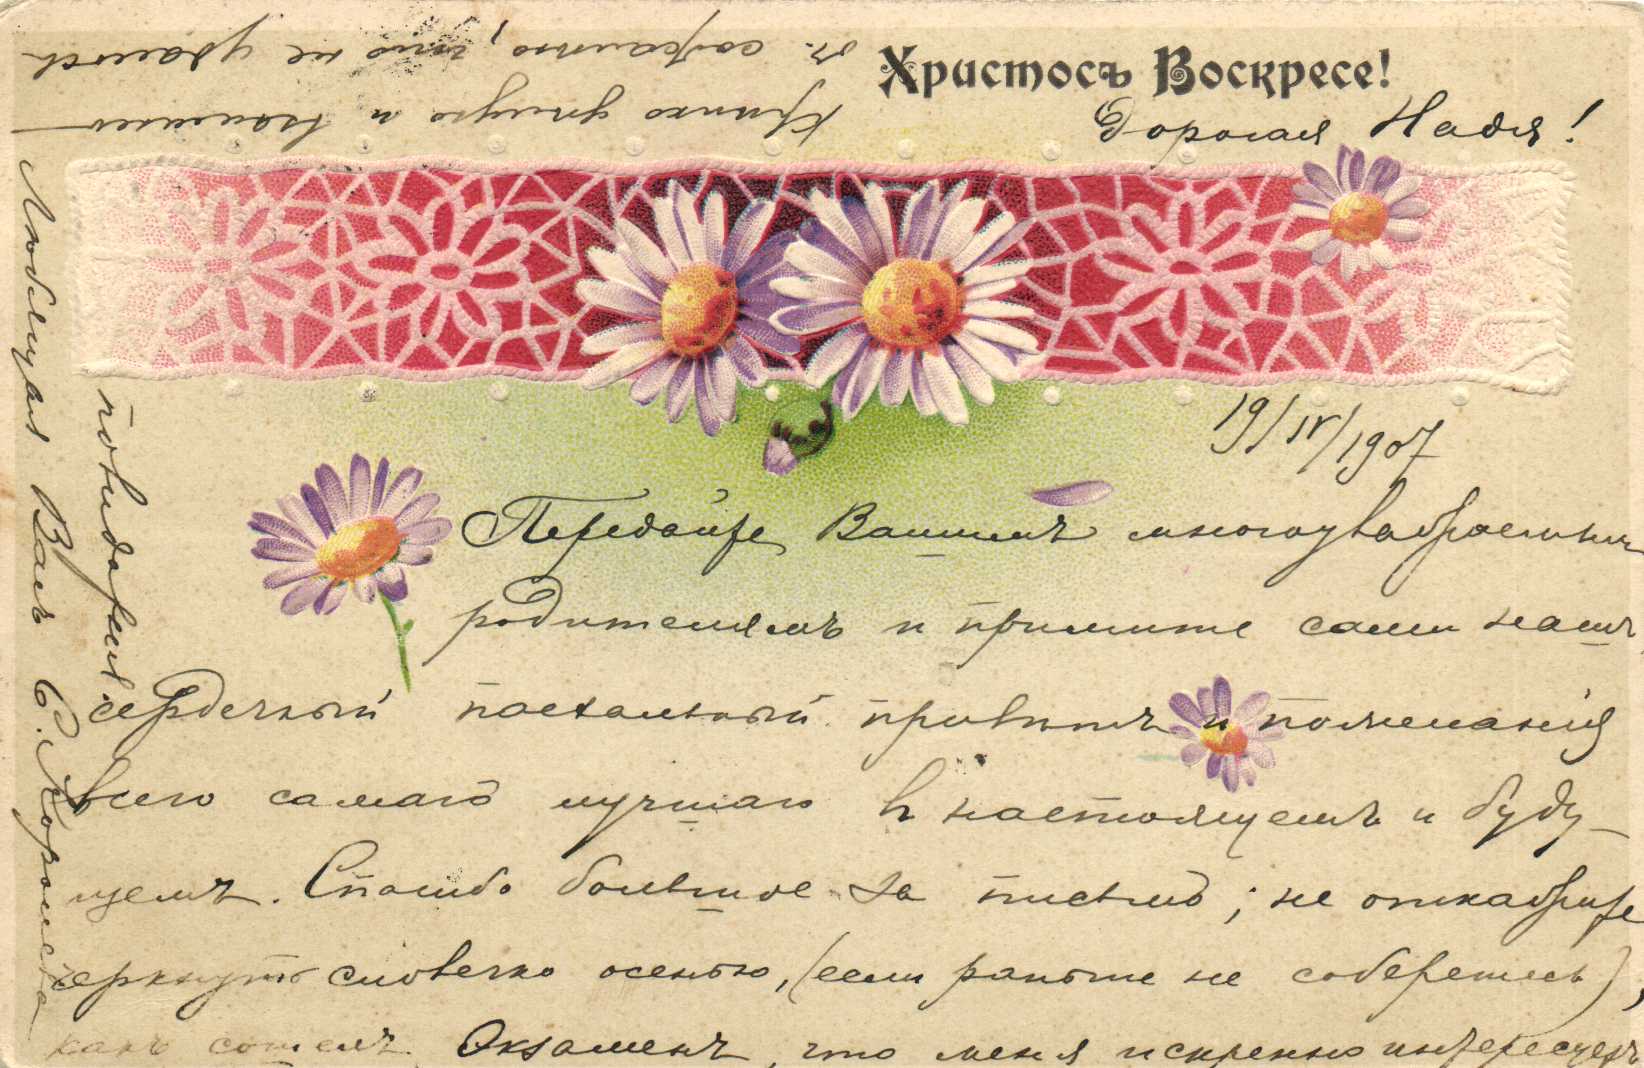 Христосъ Воскресе!
Дорогая Надя!
19/IV/1907
Передайте Вашимъ многоуважаемымъ
родителямъ и примите сами нашъ
сердечный пасхальный привѣтъ и пожеланія
всего самаго лучшаго въ настоящемъ и буду-
щемъ. Спасибо большое за письмо; не откажите
черкнуть словечко осенью, (если раньше не соберетесь),
какъ сошелъ экзаменъ, что меня искренно интересуетъ
Крѣпко цѣлую и
къ сожалѣнію, что не удалось
повидаться.
Любящая Васъ С.